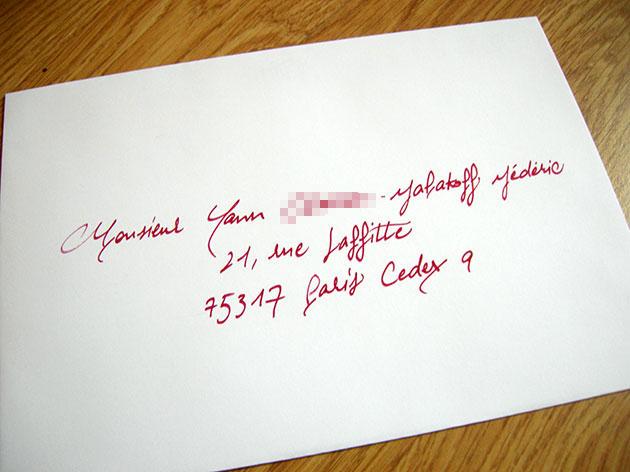 Monsieur Yann - Malakoff Médéric
21, rue Laffitte
75317 Paris Cedex 9